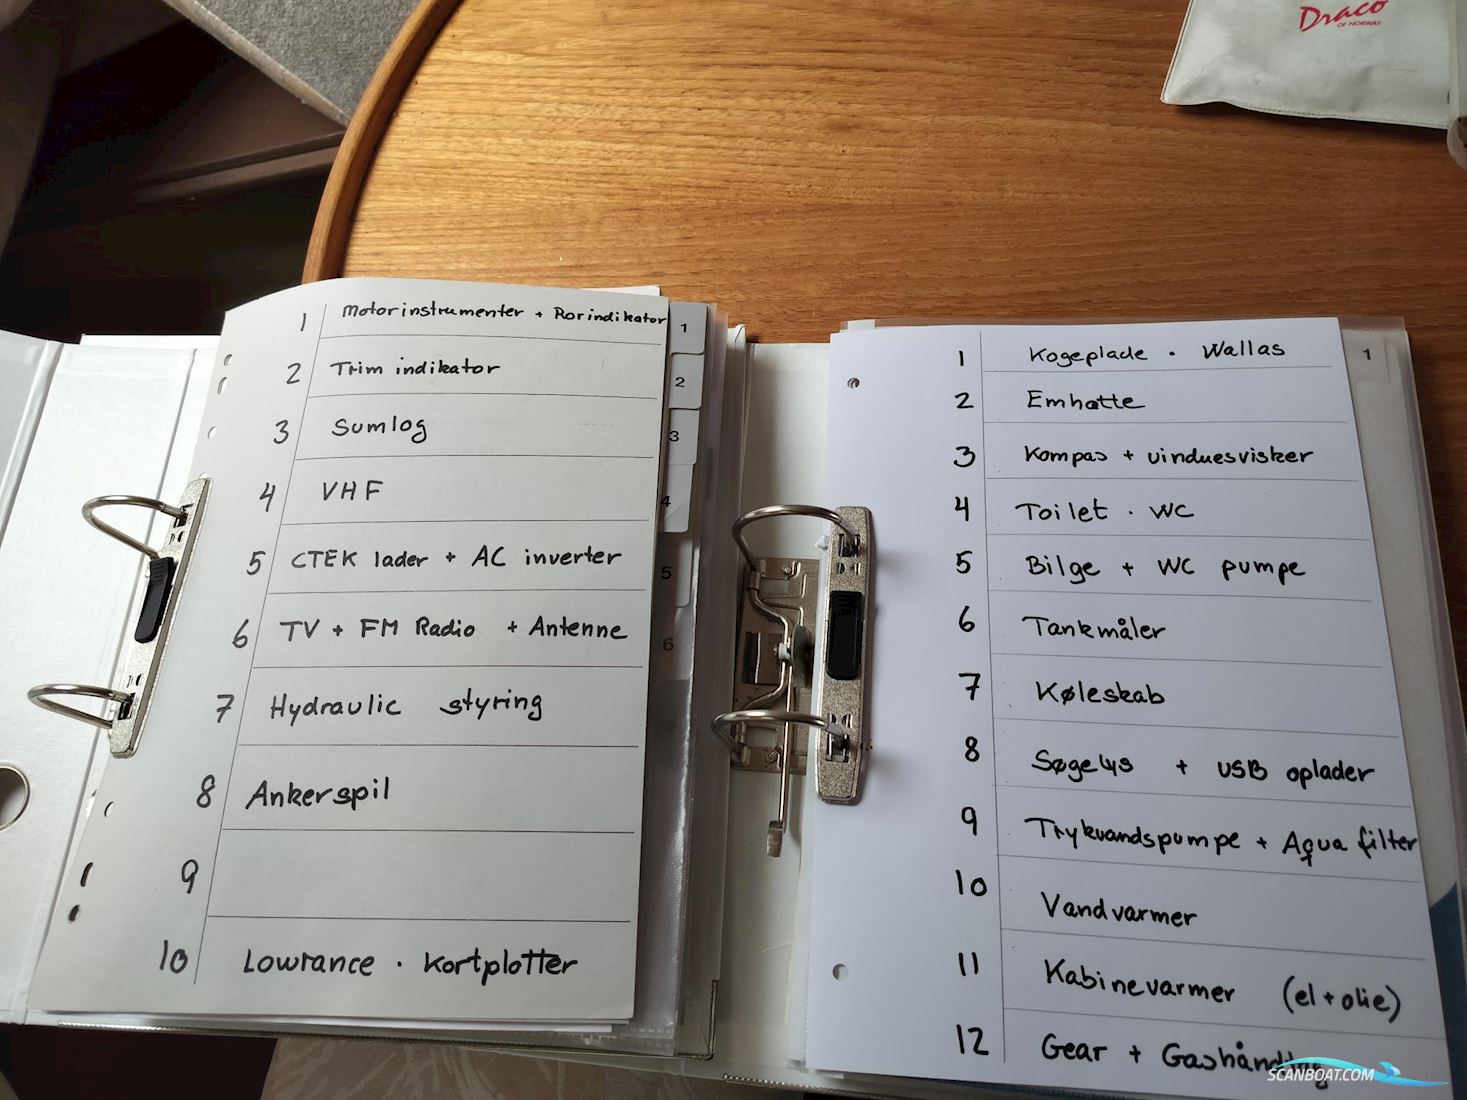 Draco
OF NORWAY
1 Motorinstrumenter + Rorindikator
2 Trim indikator
3 Sumlog
4 VHF
5 CTEK lader + AC inverter
6 TV + FM Radio + Antenne
7 Hydraulic styring
8 Ankerspil
9
10 Lowrance · Kortplotter
1
2
3
4
5
6
1 Kogeplade · Wallas
2 Emhætte
3 Kompas + vinduesvisker
4 Toilet · WC
5 Bilge + WC pumpe
6 Tankmåler
7 Køleskab
8 Søgelys + USB oplader
9 Trykvandspumpe + Aqua filter
10 Vandvarmer
11 Kabinevarmer (el + olie)
12 Gear + Gashåndtag
1
SCANBOAT.COM